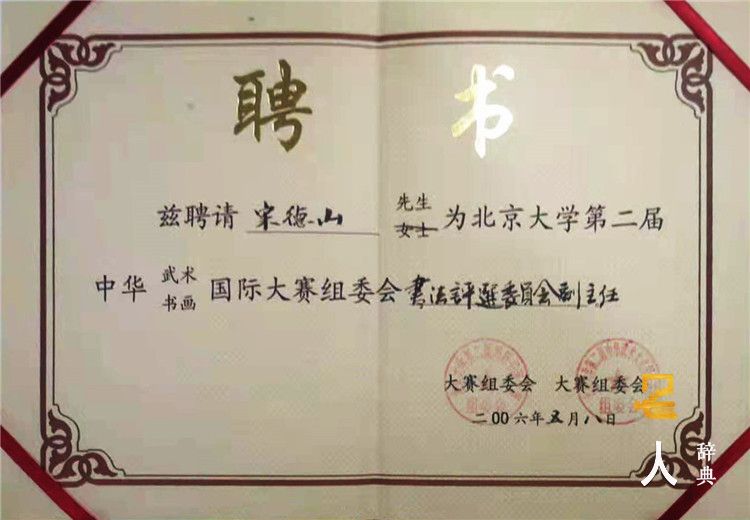 聘 书
兹聘请 宋德山 先生 女士 为北京大学第二届
中华 武术 书画 国际大赛组委会 書法評選委員会副主任
大赛组委会 大赛组委会
二00六年五月八日
组委会 组委会
名人 辞典